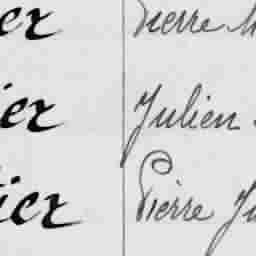 er Pierre
ier Julien
tier Pierre Ju